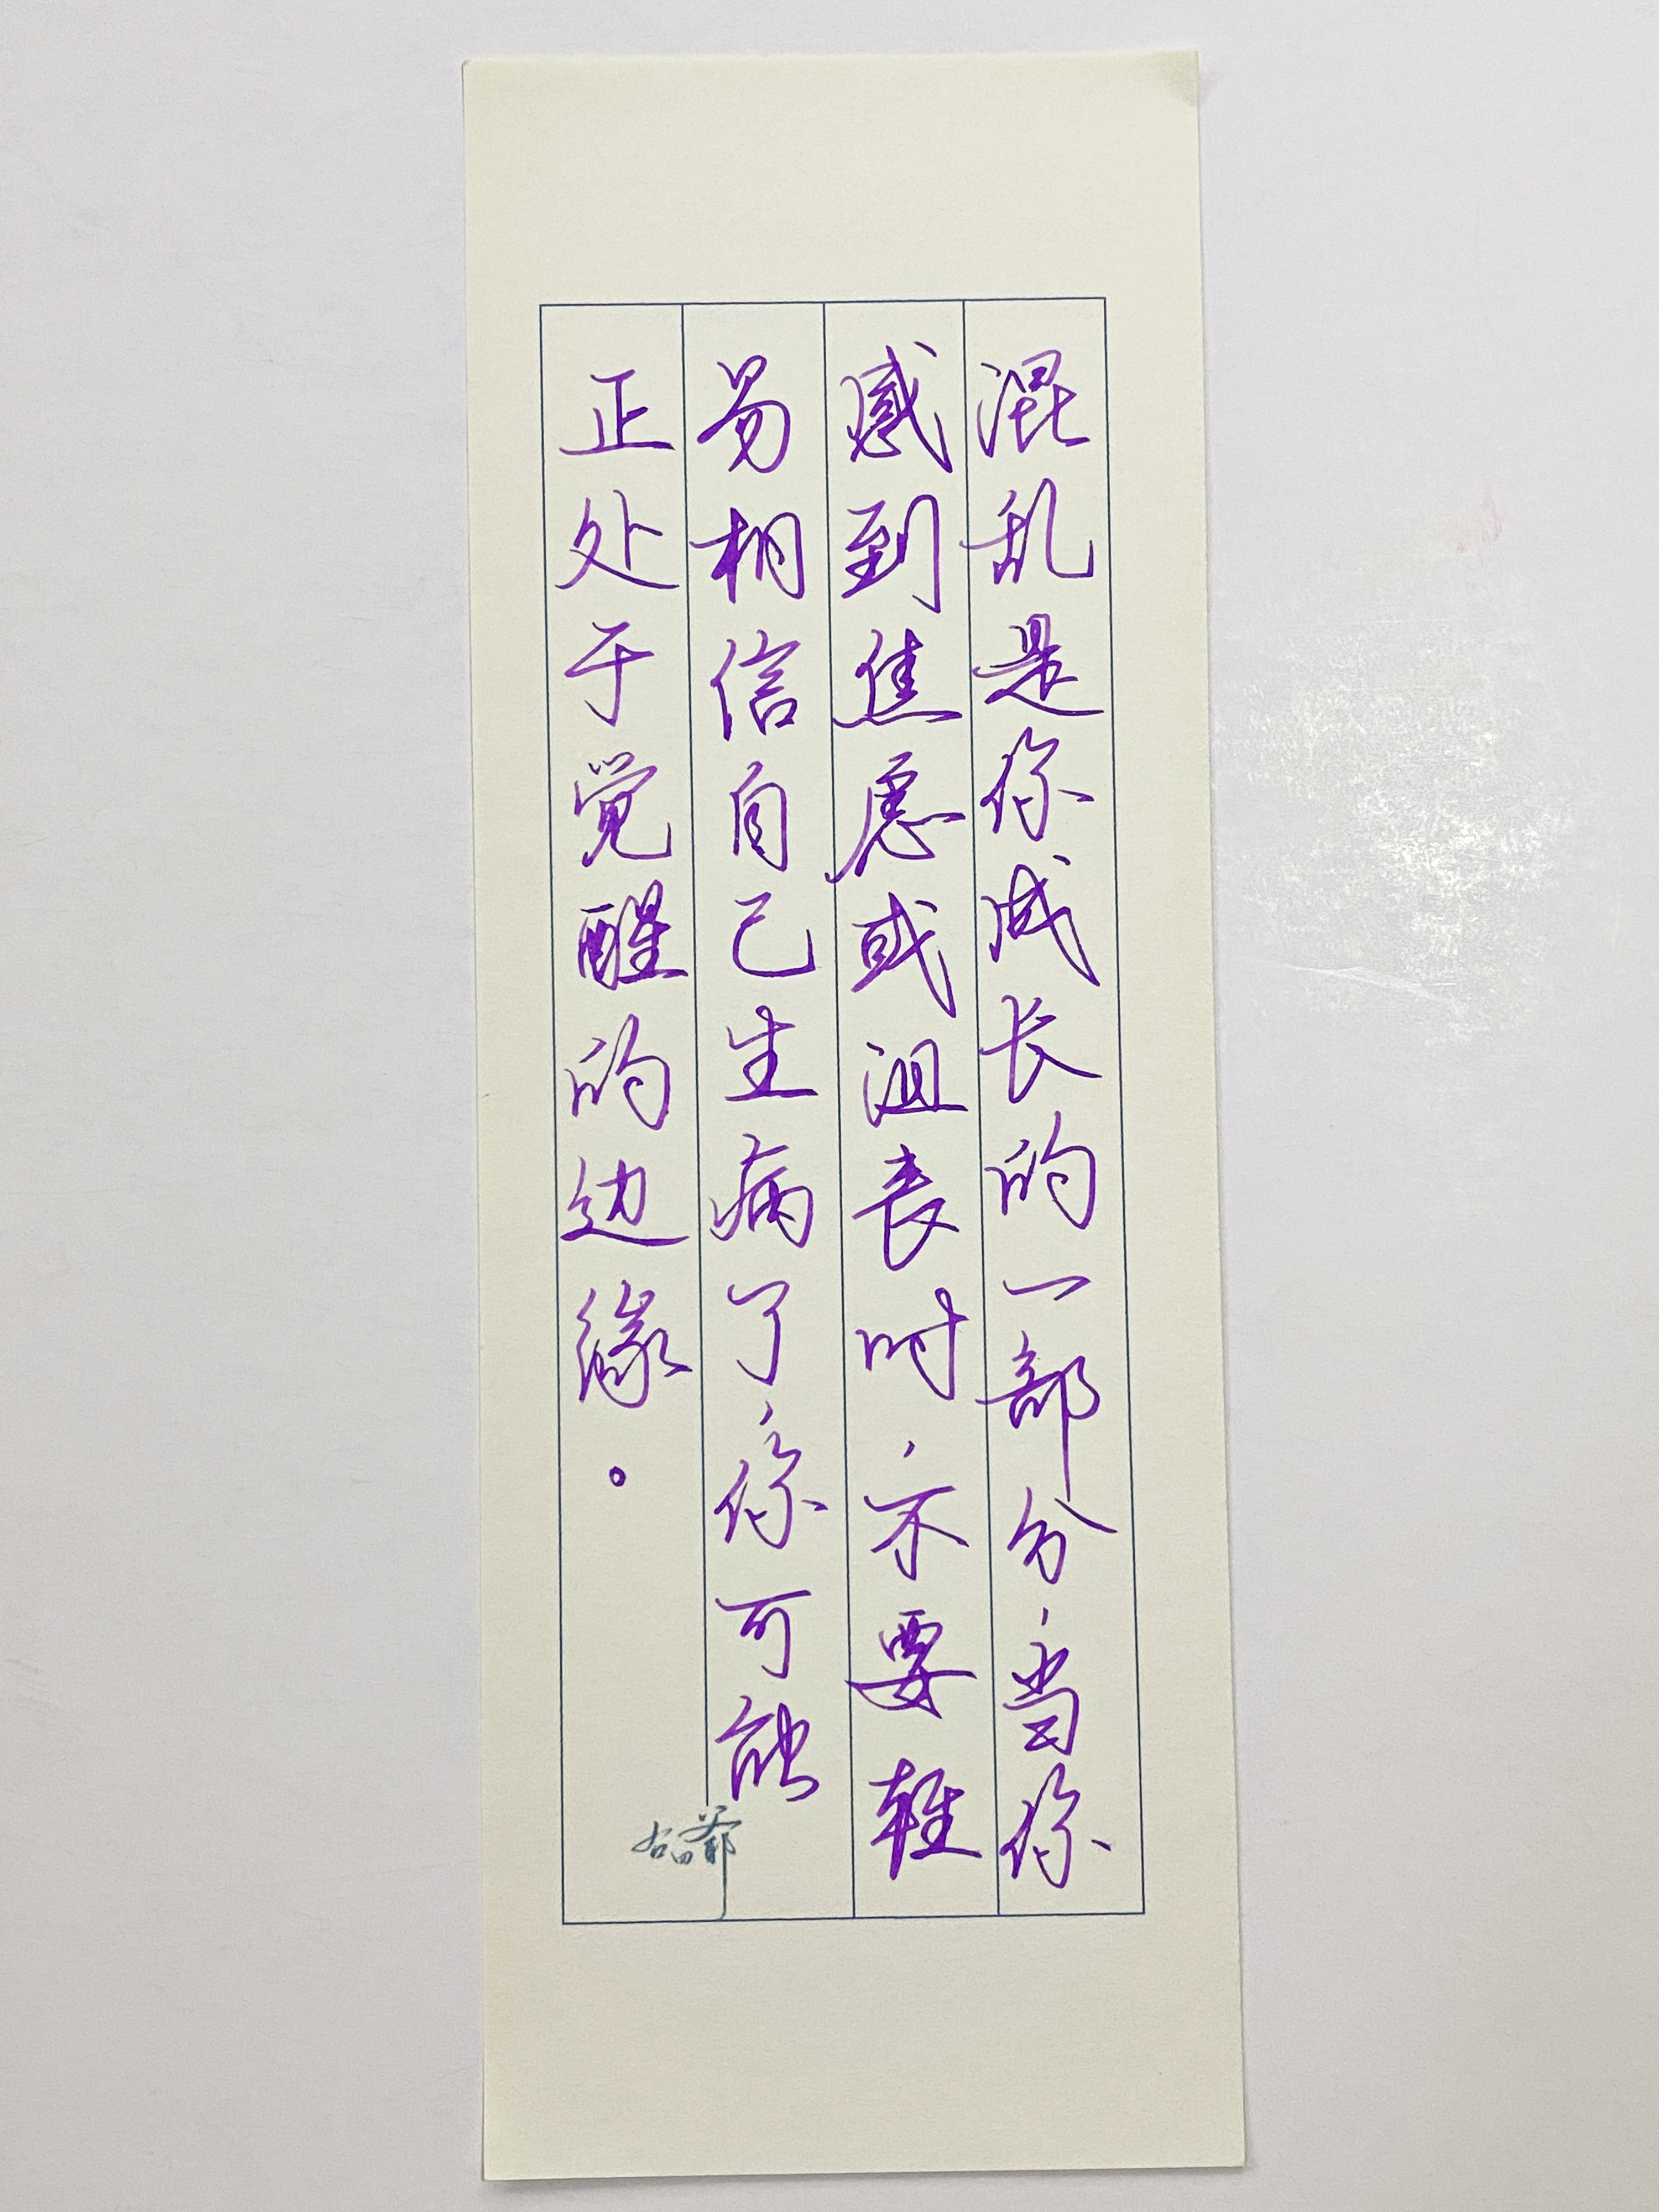 混乱是你成长的一部分，当你
感到焦虑或沮丧时，不要轻
易相信自己生病了，你可能
正处于觉醒的边缘。